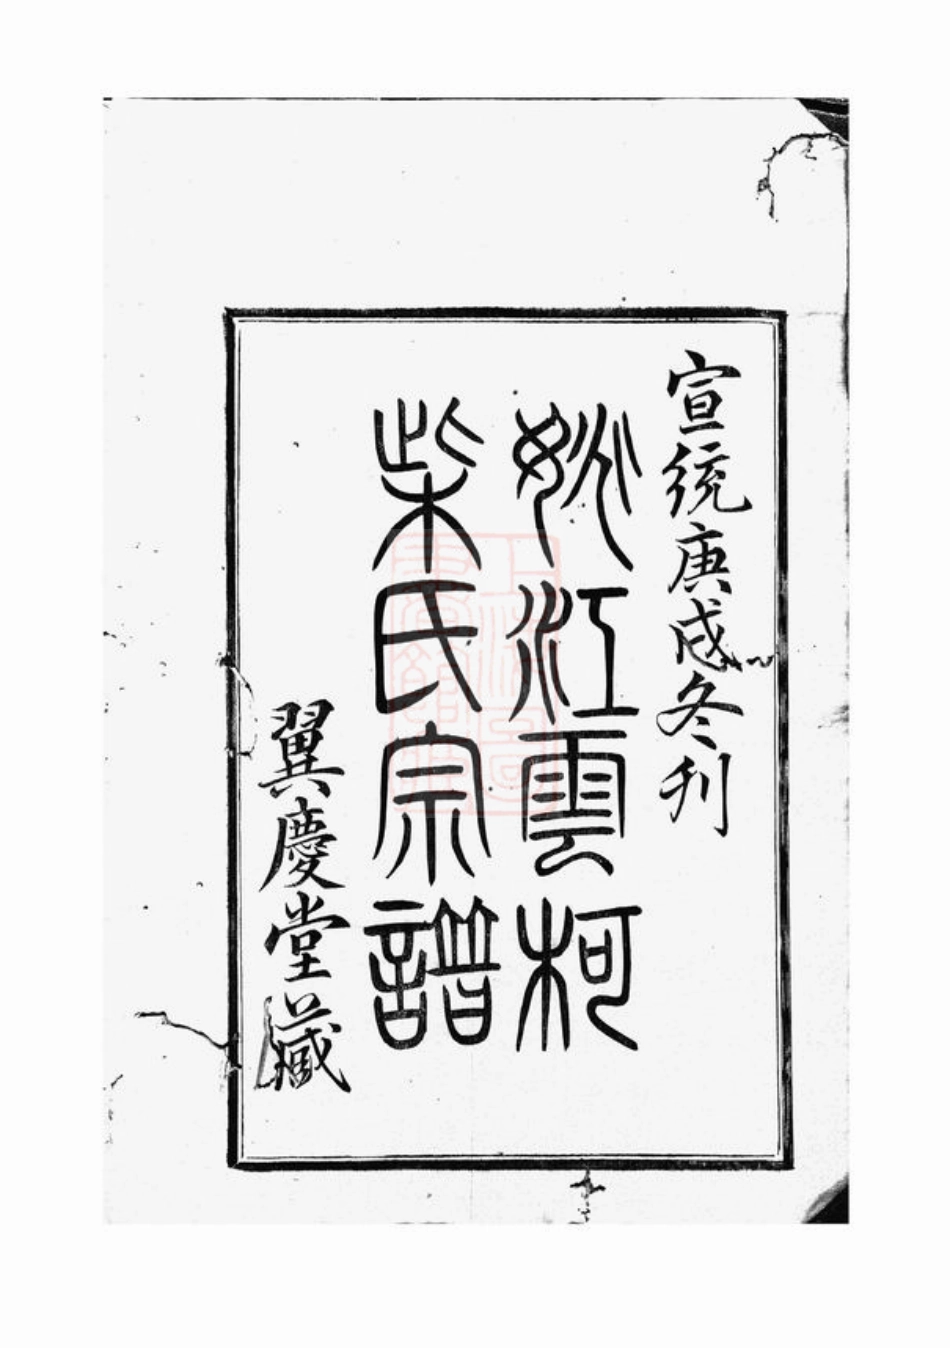 宣統庚戌冬刊
姚江雲柯
柴氏宗譜
翼慶堂藏